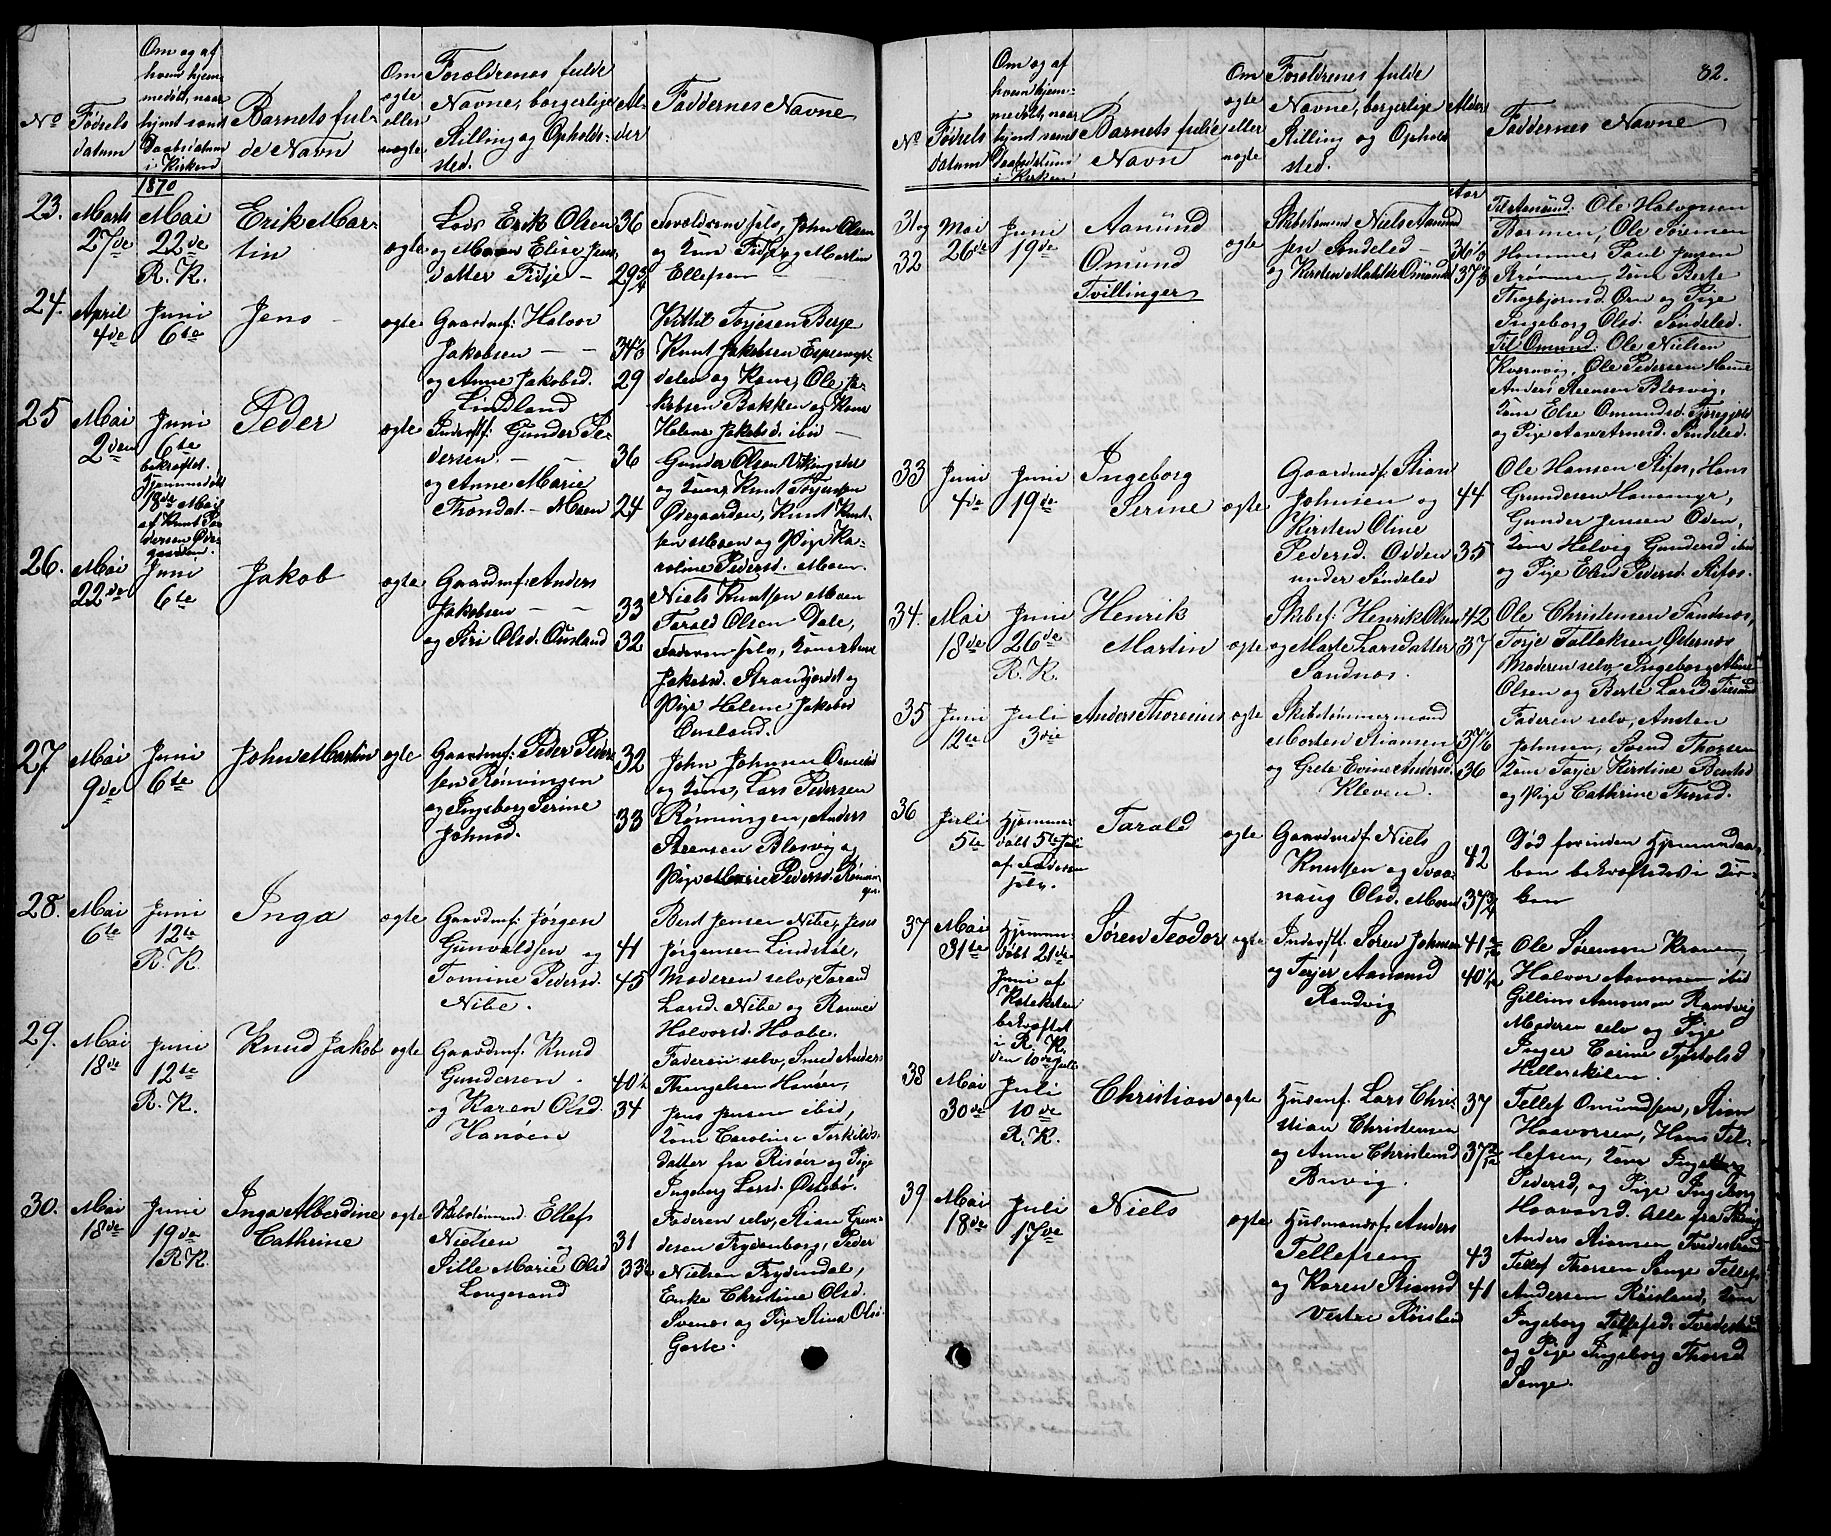 82.
No
Fødsels
datum
Om og af
hvem hjem-
medøbt, naar
hjemt samt
Daabsdatum
i Kirken
Barnets ful-
de Navn
Om
ægte
eller
uægte
Forældrenes fulde
Navne, borgerlige
Stilling og Opholds-
sted.
Al-
der
Faddernes Navne
1870
23. Marts
27de
Mai
22de
R. K.
Erik Mar-
tin
ægte
Lods Erik Olsen 36
og Maren Elise Jens
datter Fidje 29 3/4
Forældrene selv, John Olsen
og Kone Fidje og Martin
Ellefsen
24. April
4de
Juni
6te
Jens
ægte
Gaardmf: Halvor
Jakobsen 34
og Anne Jakobsd. 29
Lindland
Kittil Torjesen Berge
Knut Jakobsen Espemyr-
dalen og Kone, Ole Ja-
kobsen Bakken og Kone
Helene Jakobsd. ibid
25 Mai
2den
Juni
6te
bekræftet.
Hjemmedøbt
18de Mai
af Knut Tor-
jersen Øde-
gaarden.
Peder
ægte
Inderstf: Gunder Pe-
dersen. 36
og Anne Marie
Thondat. Moen 24
Gunder Olsen Vikingstøl
og Kone, Knut Torjersen
Ødegaarden, Knut Knut-
sen Moen og Pige Ka-
roline Pedersd. Moen.
26. Mai
22de
Juni
6te
Jakob
ægte
Gaardmf: Anders
Jakobsen 33
og Siri Olsd. Ousland 32
Niels Knutsen Moen
Tarald Olsen Dale,
Faderen selv, Kone Anne
Jakobsd. Strandjordet og
Pige Helene Jakobsd
Ousland.
27 Mai
9de
Juni
6te
John Martin
ægte
Gaardmf: Peder Peder 32
sen Rønningen
og Ingeborg Serine 33
Johnsd.
John Johnsen
og Kone, Lars Pedersen
Rønningen, Anders
Steensen Blesvig og
Pige Marie Pedersd. Rønnin-
gen.
28. Mai
6te
Juni
12te
R. K.
Inga
ægte
Gaardmf: Jørgen
Gunvaldsen og 41
Tomine Pedersd. 45
Nibe.
Bent Jensen Nibe, Jens
Jørgensen Lindstøl,
Moderen selv, Taran
Larsd. Nibe og Ranne
Halvorsd. Haabe.
29. Mai
18de
Juni
12te
R. K.
Knud Jakob
ægte
Gaardmf. Knud
Gundersen 40 1/2
og Karen Olsd. 34
Hanøen
Faderen selv, Smed Anders
Thengelsen Hanøen,
Jens Jensen ibid,
Kone Caroline Terkilds-
datter fra Risøer og Pige
Ingeborg Larsd. Østebø.
30. Mai
18de
Juni
19de
R. K.
Inga Alberdine
Cathrine
ægte
Skibstømmd. Ellef
Nielsen 31
og
Sille Marie Olsd 33 1/2
Langesand
Faderen selv, Stian Gun-
dersen Frydenborg, Peder
Nielsen Frydendal,
Enke Christine Olsd.
Svenes og Pige Stina Olsd.
Garte.
No
Fødsels
datum
Om og af
hvem hjem-
medøbt, naar
hjemt samt
Daabsdatum
i Kirken
Barnets fulde
Navn
Om
ægte
eller
uægte
Forældrenes fulde
Navne, borgerlige
Stilling og Ophold
sted.
Alder
Aar
Faddernes Navne
31 og
32
Mai
26de
Juni
19de
Aanund
Omund
Tvillinger
ægte
Skibstømmd Niels Aanund
sen Søndeled 36
og Kirsten Matilde Omunds 37
Til Aanund: Ole Halvorsen
Barmen, Ole Sørensen
Hamme, Poul Jensen
Strømmen, Kone Berte
Thorbjørnsd. Ørn og Pige
Ingeborg Olsd. Søndeled.
Til Omund: Ole Nielsen
Kvernvig, Ole Pedersen Hamme
Anders Steensen Blesvig,
Kone Else Omundsd.
og Pige Aase Arnesd. Søndeled.
33 Juni
4de
Juni
19de
Ingeborg
Serine
ægte
Gaardmdf: Stian
Johnsen og 44
Kirsten Oline
Pedersd. Odden 35
under Søndeled
Ole Hansen Stifos, Hans
Gundersen Havemyr,
Gunder Jensen Oden,
Kone Helvig Gundersd ibid
og Pige Elise Pedersd. Stifos.
34. Mai
18de
Juni
26de
R. K.
Henrik
Martin
ægte
Skibsf: Henrik Olsen 42
og Marte Larsdatter 37
Sandnæs.
Ole Christensen Sandnæs,
Torje Tallaksen Østernæs
Moderen selv, Ingeborg Aline
Olsen og Berte Larsd.
35 Juni
12te
Juli
3die
Anders Thorenius
ægte
Skibstømmermand
Morten Stiansen 37
og Grete Evine Andersd. 36
Kleven.
Faderen selv, Austen
Johnsen, Svend Thorsen
Kone Torjer Kirstine Bentsd
og Pige Cathrine Thorsd.
36 Juli
5te
Hjemme-
døbt 5te Juli
af Faderen
selv.
Tarald
ægte
Gaardmdf: Niels
Knutsen og Svaa- 42
naug Olsd. Moen 37 3/4
Død forinden Hjemmedaa-
ben bekræftedes i Kir-
ken
37 Mai
31te
Hjemme-
døbt 21de
Juni af
Kateketen
bekræftet
i R. K.
den 10de Juli
Søren Teodor
ægte
Inderstf. Søren Johnsen 41
og Torjer Aanund 40
Randvig
Ole Sørensen Kranen,
Halvor Aanonsen ibid
Gellius Aanonsen Randvig
Moderen selv og Pige
Inger Carine Tjøstolsd
Hellerskilen.
38 Mai
30de
Juli
10de
R. K.
Christian
ægte
Husmf. Lars Chri- 37
stian Christensen
og Anne Christensd 37
Buvig.
Tellef Omundsen, Stian
Haavorsen, Hans Tel-
lefsen, Kone Ingeborg
Pedersd, og Pige Ingeborg
Haavorsd. Alle fra
39 Mai
18de
Juli
17de
Niels
ægte
Husmandsf: Anders
Tellefsen 43
og Karen Stiansd 41
Vestre Røisland
Anders Stiansen Tvedestrand
Tellef Thorsen Songe, Tellef
Andersen Røisland, Kone
Ingeborg Tellefsd. Tvedestrand
og Pige Ingeborg Thorsd
Songe.